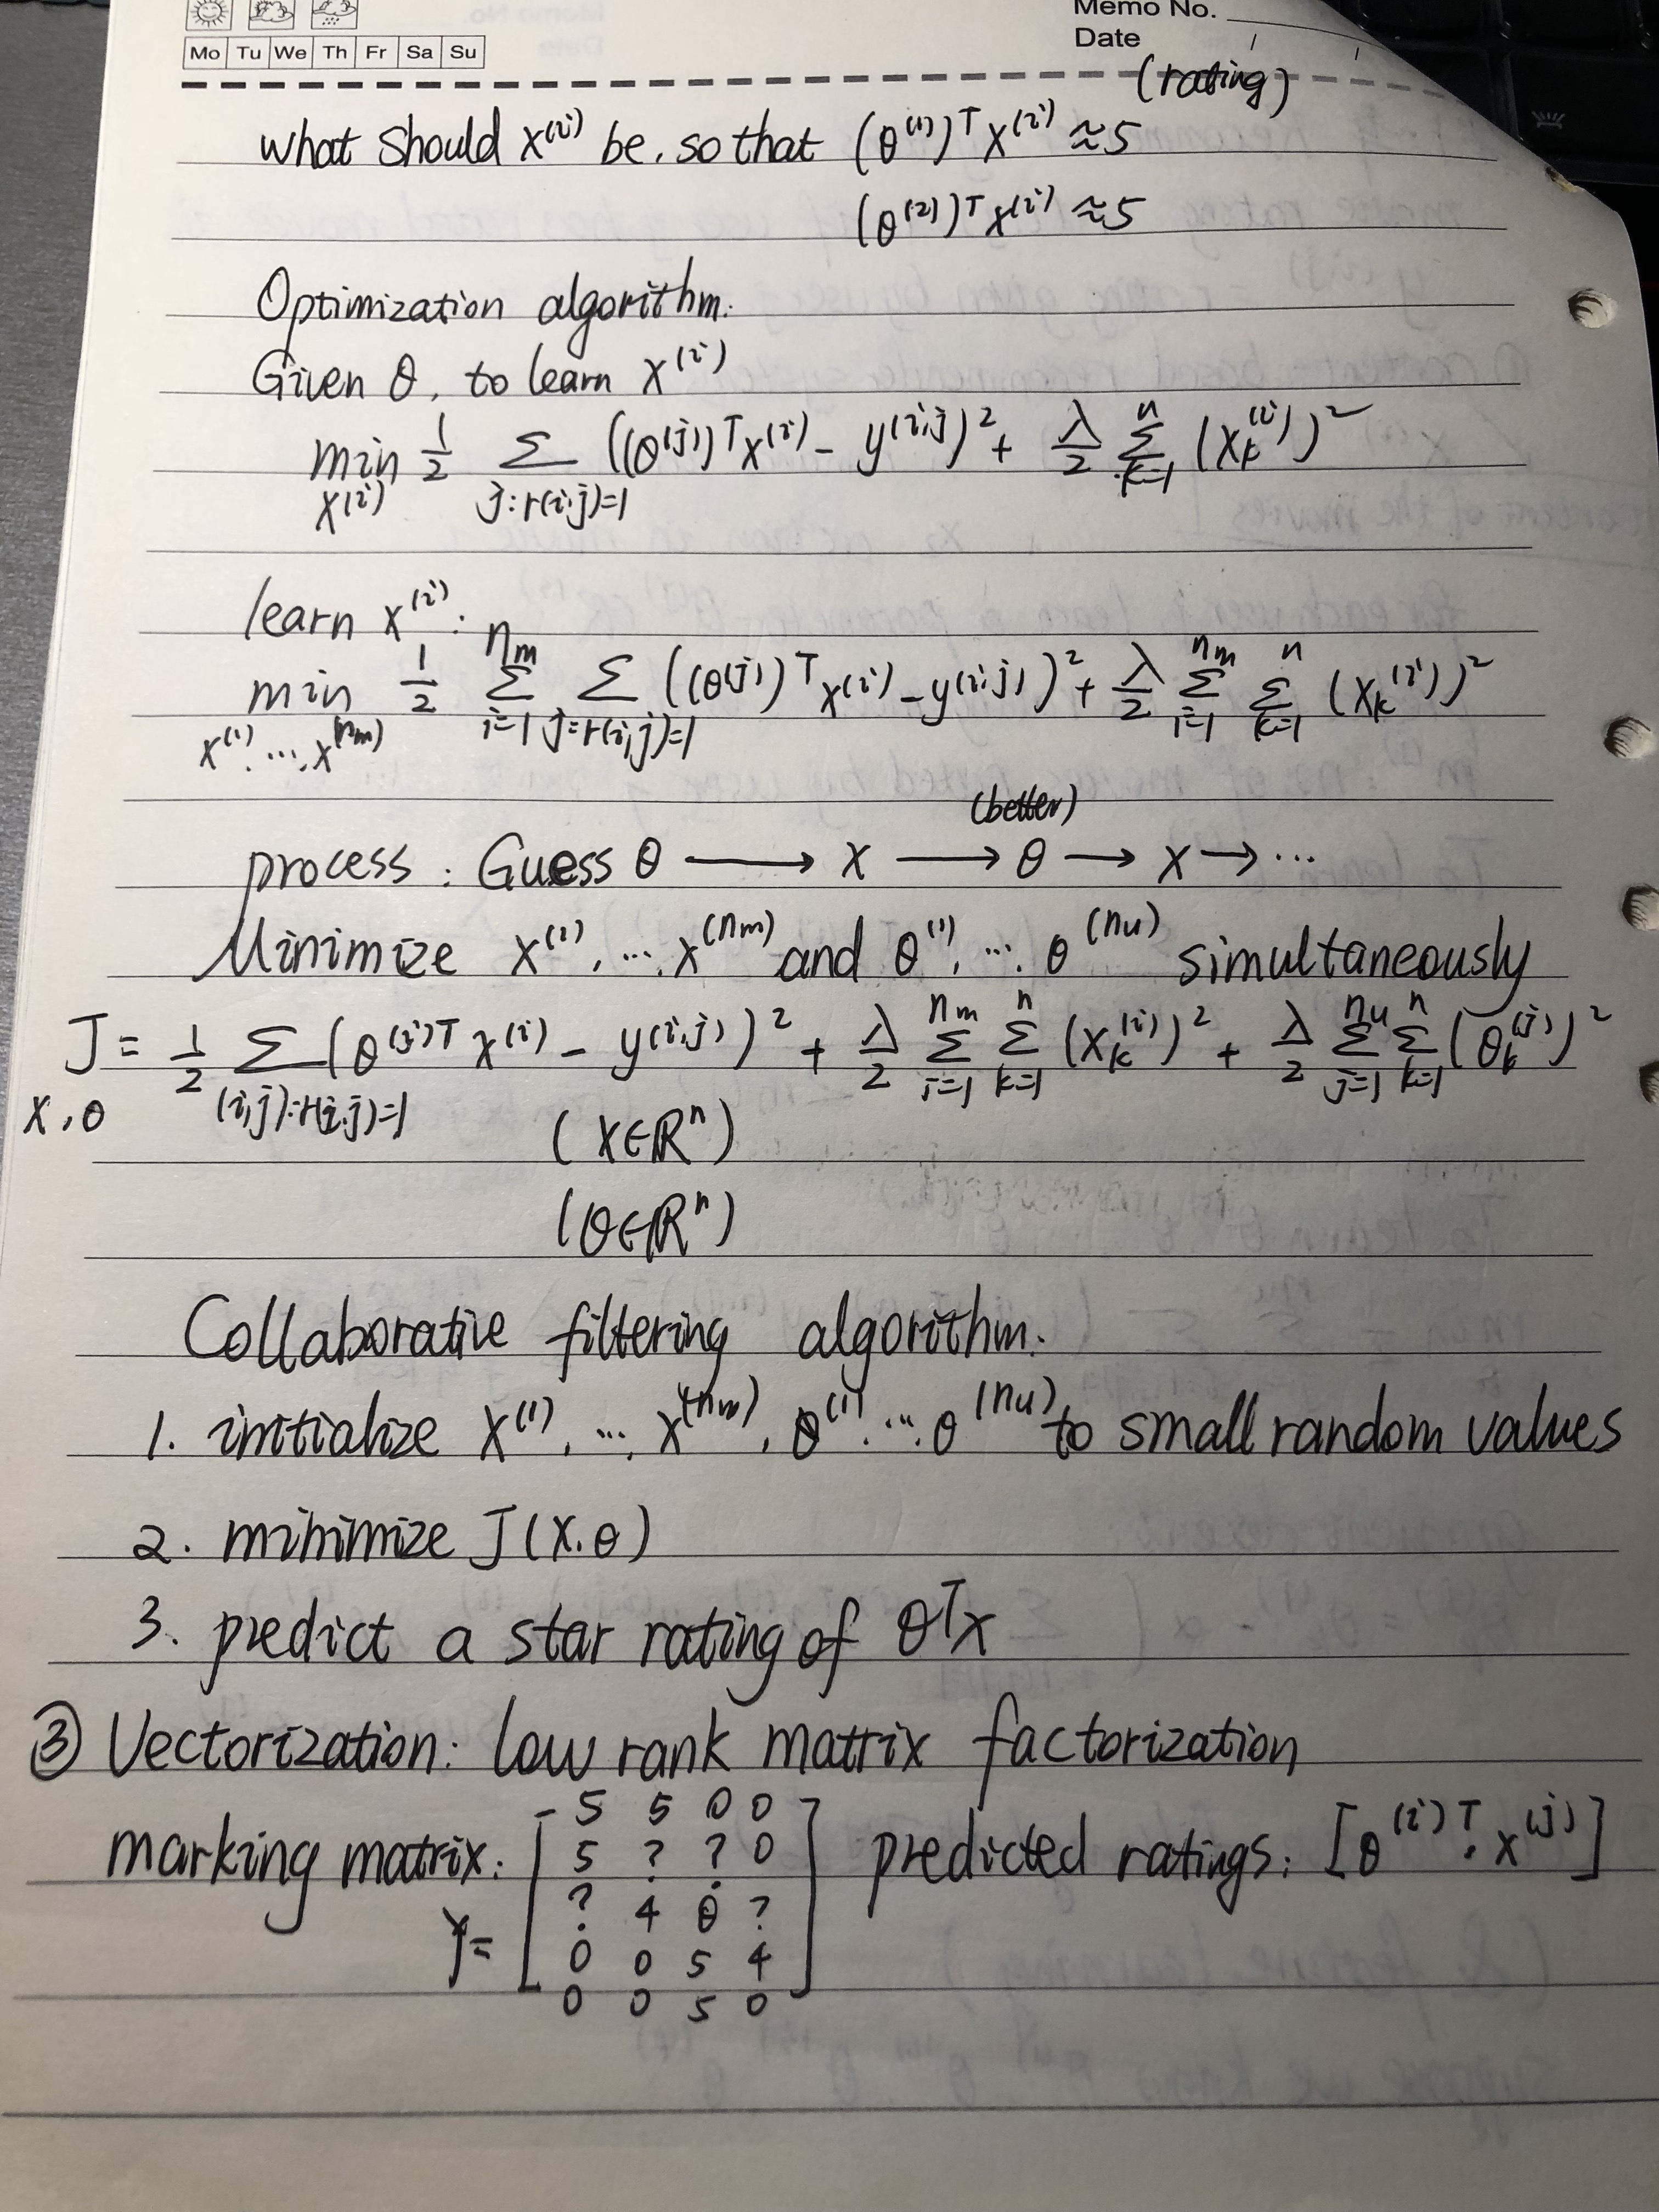 Memo No.
Mo Tu We Th Fr Sa Su
Date / /
(rating)
what should x⁽ⁱ⁾ be, so that (θ⁽¹⁾)ᵀ x⁽ⁱ⁾ ≈ 5
(θ⁽²⁾)ᵀ x⁽ⁱ⁾ ≈ 5
Optimization algorithm:
Given θ, to learn x⁽ⁱ⁾
min_{x⁽ⁱ⁾} 1/2 Σ_{j:r(i,j)=1} ((θ⁽ʲ⁾)ᵀ x⁽ⁱ⁾ - y⁽ⁱ,ʲ⁾)² + λ/2 Σ_{k=1}^{n} (x_k⁽ⁱ⁾)²
learn x⁽ⁱ⁾:
min_{x⁽¹⁾, ..., x^(n_m)} 1/2 Σ_{i=1}^{n_m} Σ_{j=r(i,j)=1} ((θ⁽ʲ⁾)ᵀ x⁽ⁱ⁾ - y⁽ⁱ,ʲ⁾)² + λ/2 Σ_{i=1}^{n_m} Σ_{k=1}^{n} (x_k⁽ⁱ⁾)²
(better)
process: Guess θ → x → θ → x → ...
Minimize x⁽¹⁾, ... x^(n_m) and θ⁽¹⁾, ... θ^(n_u) simultaneously
J_{x,θ} = 1/2 Σ_{(i,j):r(i,j)=1} (θ⁽ʲ⁾ᵀ x⁽ⁱ⁾ - y⁽ⁱ,ʲ⁾)² + λ/2 Σ_{i=1}^{n_m} Σ_{k=1}^{n} (x_k⁽ⁱ⁾)² + λ/2 Σ_{j=1}^{n_u} Σ_{k=1}^{n} (θ_k⁽ʲ⁾)²
(x∈ℝⁿ)
(θ∈ℝⁿ)
Collaborative filtering algorithm:
1. initialize x⁽¹⁾, ..., x^(n_m), θ⁽¹⁾, ... θ^(n_u) to small random values
2. minimize J(x,θ)
3. predict a star rating of θᵀx
③ Vectorization: low rank matrix factorization
marking matrix: predicted ratings: [θ⁽ⁱ⁾ᵀ · x⁽ʲ⁾]
Y =
5 5 0 0
5 ? ? 0
? 4 0 ?
0 0 5 4
0 0 5 0